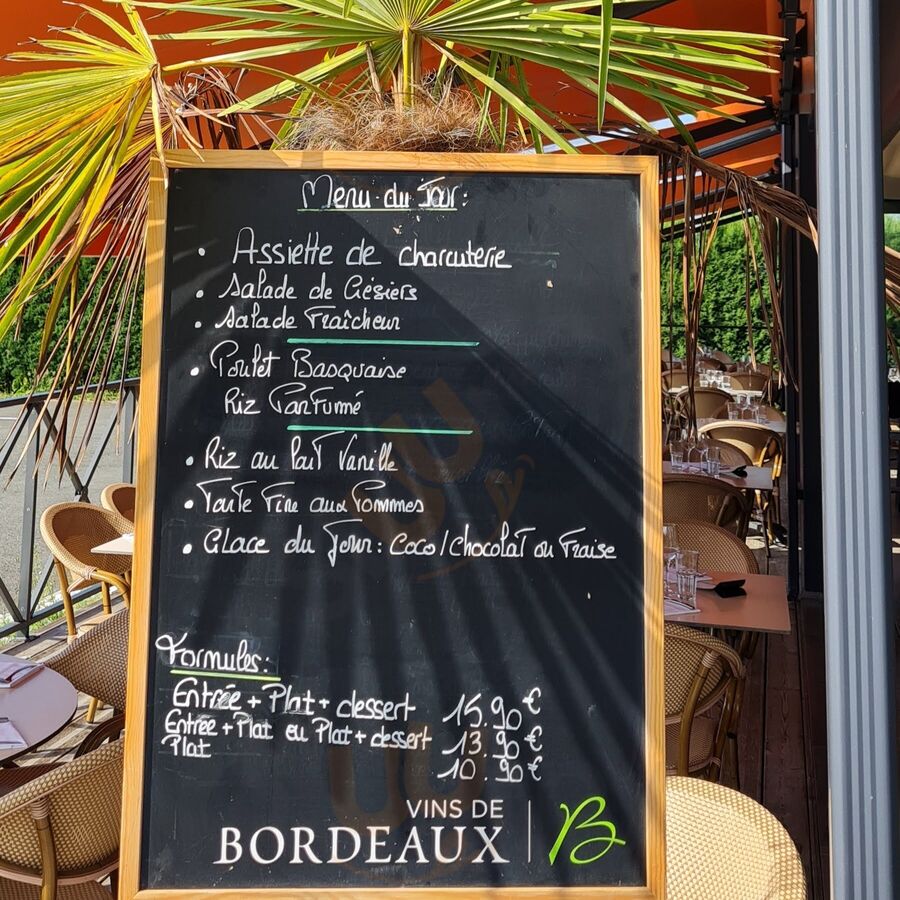 Menu du Jour:
• Assiette de charcuterie
• Salade de Gésiers
• Salade Fraîcheur
• Poulet Basquaise
Riz Parfumé
• Riz au Lait Vanille
• Tarte Fine aux Pommes
• Glace du Jour: Coco/Chocolat ou Fraise
Formules:
Entrée + Plat + dessert 15.90€
Entrée + Plat ou Plat + dessert 13.90€
Plat 10.90€
VINS DE
BORDEAUX | B